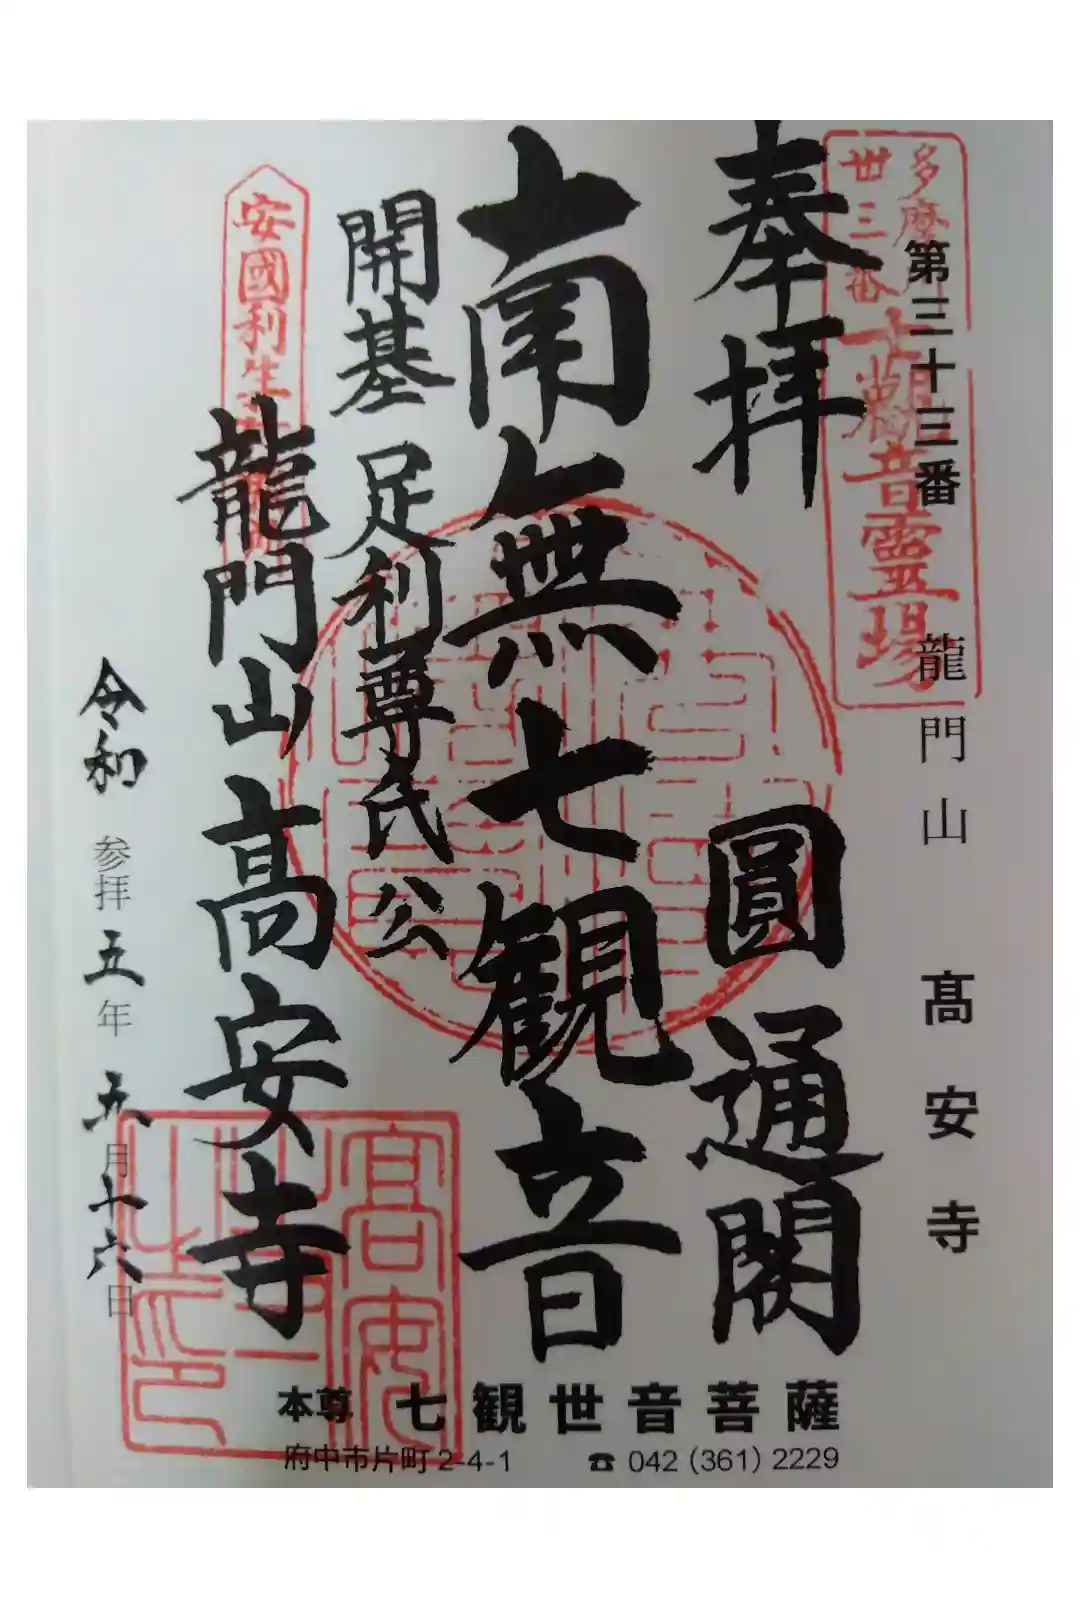 第三十三番 龍門山 髙安寺
多摩川
卅三番
観音霊場
奉拝 圓通閣
南無七観音
開基 足利尊氏公
安國利生
龍門山高安寺
令和 参拝 五年 五月十六日
高安
寺
之印
本尊 七観世音菩薩
府中市片町 2-4-1 ☎ 042 (361) 2229